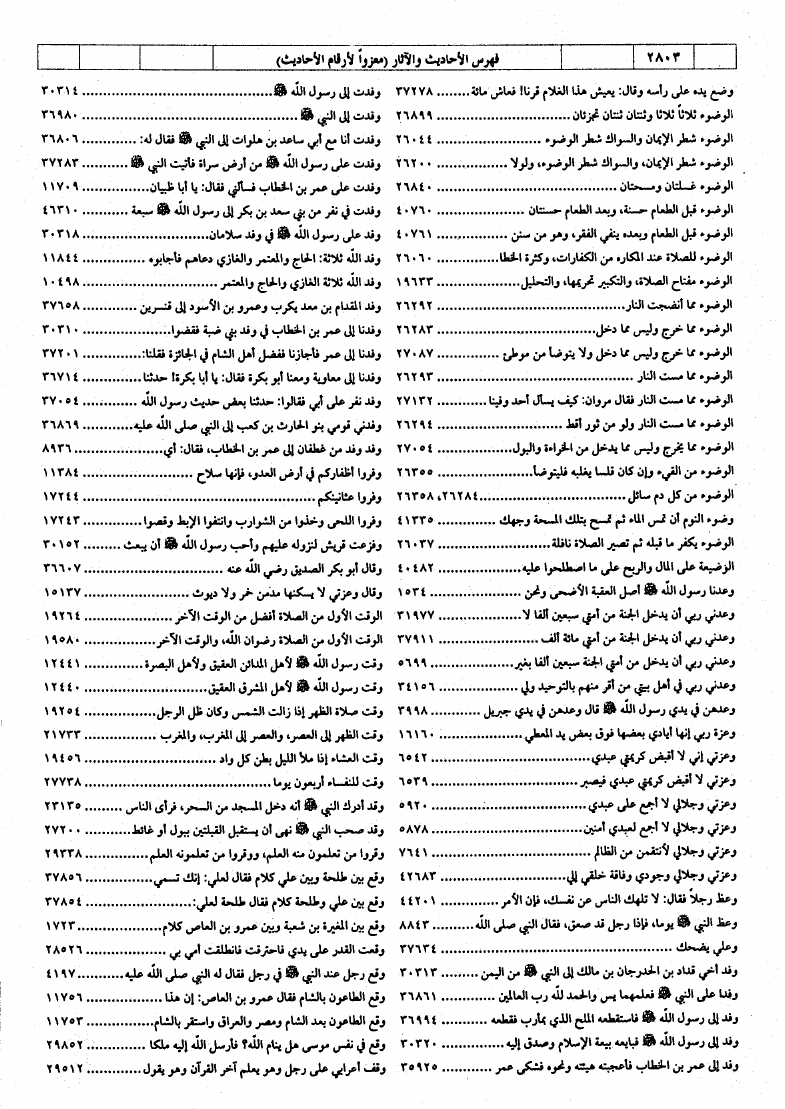 ٢٨٠٣
فهرس الأحاديث والآثار (معزواً لأرقام الأحاديث)
وضع يده على رأسه وقال: يعيش هذا الغلام قرنا! فعاش مائة........ ٣٧٢٧٨
الوضوء ثلاثاً ثلاثا وثنتان ثنتان تجزئان ........ ٢٦٨٩٩
الوضوء شطر الإيمان والسواك شطر الوضوء ........ ٢٦٠٤٤
الوضوء شطر الإيمان، والسواك شطر الوضوء، ولولا ........ ٢٦٢٠٠
الوضوء غسلتان ومسحتان ........ ٢٦٨٤٠
الوضوء قبل الطعام حسنة، وبعد الطعام حسنتان ........ ٤٠٧٦٠
الوضوء قبل الطعام وبعده ينفي الفقر، وهو من سنن ........ ٤٠٧٦١
الوضوء للصلاة عند المكاره من الكفارات، وكثرة الخطا ........ ٢٦٠٦٠
الوضوء مفتاح الصلاة، والتكبير تحريمها، والتحليل ........ ١٩٦٣٣
الوضوء مما أنضجت النار ........ ٢٦٢٩٢
الوضوء مما خرج وليس مما دخل ........ ٢٦٢٨٣
الوضوء مما خرج وليس مما دخل ولا يتوضأ من موطئ ........ ٢٧٠٨٧
الوضوء مما مست النار ........ ٢٦٢٩٣
الوضوء مما مست النار فقال مروان: كيف يسأل أحد وفينا ........ ٢٧١٣٢
الوضوء مما مست النار ولو من ثور أقط ........ ٢٦٢٩٤
الوضوء مما يخرج وليس مما يدخل من الخراءة والبول ........ ٢٧٠٥٤
الوضوء من القيء وإن كان قلسا يغلبه فليتوضأ ........ ٢٦٣٥٥
الوضوء من كل دم سائل ........ ٢٦٢٨٤، ٢٦٣٥٨
وضوء النوم أن تمس الماء ثم تمسح بتلك المسحة وجهك ........ ٤١٣٣٥
الوضوء يكفر ما قبله ثم تصير الصلاة نافلة ........ ٢٦٠٣٧
الوضيعة على المال والربح على ما اصطلحوا عليه ........ ٤٠٤٨٢
وعدنا رسول الله ﷺ أصل العقبة الأضحى ونحن ........ ١٥٣٤
وعدني ربي أن يدخل الجنة من أمتي سبعين ألفا لا ........ ٣١٩٧٧
وعدني ربي أن يدخل الجنة من أمتي مائة ألف ........ ٣٧٩١١
وعدني ربي أن يدخل من أمتي الجنة سبعين ألفا بغير ........ ٥٦٩٩
وعدني ربي في أهل بيتي من أقر منهم بالتوحيد ولي ........ ٣٤١٥٦
وعدهن في يدي رسول الله ﷺ قال وعدهن في يدي جبريل ........ ٣٩٩٨
وعزة ربي إنها أيادي بعضها فوق بعض يد المعطي ........ ١٦١٦٠
وعزتي إني لا أقبض كريمتي عبدي ........ ٦٥٤٢
وعزتي لا أقبض كريمتي عبدي فيصبر ........ ٦٥٣٩
وعزتي وجلالي لا أجمع على عبدي ........ ٥٩٢٠
وعزتي وجلالي لا أجمع لعبدي أمنين ........ ٥٨٧٨
وعزتي وجلالي لأنتقمن من الظالم ........ ٧٦٤١
وعزتي وجلالي وجودي وفاقة خلقي إلي ........ ٤٢٦٨٣
وعظ رجلاً فقال: لا تلهك الناس عن نفسك، فإن الأمر ........ ٤٤٢٠١
وعظ النبي ﷺ يوما، فإذا رجل قد صعق، فقال النبي صلى الله ........ ٨٨٤٣
وعلي يضحك ........ ٣٧٦٣٤
وفد أخي قداد بن الحدرجان بن مالك إلى النبي ﷺ من اليمن ........ ٣٠٣١٣
وفدا على النبي ﷺ فعلمهما يس والحمد لله رب العالمين ........ ٣٦٨٦١
وفد إلى رسول الله ﷺ فاستقطعه الملح الذي بمأرب فقطعه ........ ٣٦٩٩٤
وفد إلى رسول الله ﷺ فبايعه بيعة الإسلام وصدق إليه ........ ٣٠٣٢٠
وفد إلى عمر بن الخطاب فأعجبته هيئته ونحوه فشكى عمر ........ ٣٥٩٢٥
وفدت إلى رسول الله ﷺ ........ ٣٠٣١٤
وفدت إلى النبي ﷺ ........ ٣٦٩٨٠
وفدت أنا مع أبي ساعد بن هلوات إلى النبي ﷺ فقال له: ........ ٣٦٨٠٦
وفدت على رسول الله ﷺ من أرض سراة فأتيت النبي ﷺ ........ ٣٧٢٨٣
وفدت على عمر بن الخطاب فسألني فقال: يا أبا ظبيان ........ ١١٧٠٩
وفدت في نفر من بني سعد بن بكر إلى رسول الله ﷺ سبعة ........ ٤٦٣١٠
وفد على رسول الله ﷺ في وفد سلامان ........ ٣٠٣١٨
وفد الله ثلاثة: الحاج والمعتمر والغازي دعاهم فأجابوه ........ ١١٨٤٤
وفد الله ثلاثة الغازي والحاج والمعتمر ........ ١٠٤٩٨
وفد المقدام بن معد يكرب وعمرو بن الأسود إلى قنسرين ........ ٣٧٦٥٨
وفدنا إلى عمر بن الخطاب في وفد بني ضبة فقضوا ........ ٣٠٣١٠
وفدنا إلى عمر فأجازنا ففضل أهل الشام في الجائزة فقلنا: ........ ٣٧٢٠١
وفدنا إلى معاوية ومعنا أبو بكرة فقال: يا أبا بكرة! حدثنا ........ ٣٦٧١٤
وفد نفر على أبي فقالوا: حدثنا بعض حديث رسول الله ........ ٣٧٠٥٤
وفدني قومي بنو الحارث بن كعب إلى النبي صلى الله عليه ........ ٣٦٨٦٩
وفد وفد من غطفان إلى عمر بن الخطاب، فقال: أي ........ ٨٩٣٦
وفروا أظفاركم في أرض العدو، فإنها سلاح ........ ١١٣٨٤
وفروا عثانينكم ........ ١٧٢٤٤
وفروا اللحى وخذوا من الشوارب وانتفوا الإبط وقصوا ........ ١٧٢٤٣
وفزعت قريش لنزوله عليهم وأحب رسول الله ﷺ أن يبعث ........ ٣٠١٥٢
وقال أبو بكر الصديق رضي الله عنه ........ ٣٦٦٠٧
وقال وعزتي لا يسكنها مدمن خمر ولا ديوث ........ ١٥١٣٧
الوقت الأول من الصلاة أفضل من الوقت الآخر ........ ١٩٢٦٤
الوقت الأول من الصلاة رضوان الله، والوقت الآخر ........ ١٩٥٨٠
وقت رسول الله ﷺ لأهل المدائن العقيق ولأهل البصرة ........ ١٢٤٤١
وقت رسول الله ﷺ لأهل المشرق العقيق ........ ١٢٤٤٠
وقت صلاة الظهر إذا زالت الشمس وكان ظل الرجل ........ ١٩٢٥٤
وقت الظهر إلى العصر، والعصر إلى المغرب، والمغرب ........ ٢١٧٣٣
وقت العشاء إذا ملأ الليل بطن كل واد ........ ١٩٤٥٦
وقت للنفساء أربعون يوما ........ ٢٧٧٣٨
وقد أدرك النبي ﷺ أنه دخل المسجد من السحر، فرأى الناس ........ ٢٣١٣٥
وقد صحب النبي ﷺ نهى أن يستقبل القبلتين ببول أو غائط ........ ٢٧٢٠٠
وقروا من تعلمون منه العلم، ووقروا من تعلمونه العلم ........ ٢٩٣٣٨
وقع بين طلحة وبين علي كلام فقال لعلي: إنك تسمي ........ ٣٧٨٥٦
وقع بين علي وطلحة كلام فقال طلحة لعلي: ........ ٣٧٨٥٤
وقع بين المغيرة بن شعبة وبين عمرو بن العاص كلام ........ ١٧٢٣
وقعت القدر على يدي فاحترقت فانطلقت أمي بي ........ ٢٨٥٢٦
وقع رجل عند النبي ﷺ في رجل فقال له النبي صلى الله عليه ........ ٤١٩٧
وقع الطاعون بالشام فقال عمرو بن العاص: إن هذا ........ ١١٧٥٦
وقع الطاعون بعد الشام ومصر والعراق واستقر بالشام ........ ١١٧٥٣
وقع في نفس موسى هل ينام الله؟ فأرسل الله إليه ملكا ........ ٢٩٨٥٢
وقف أعرابي على رجل وهو يعلم آخر القرآن وهو يقول ........ ٢٩٥١٢